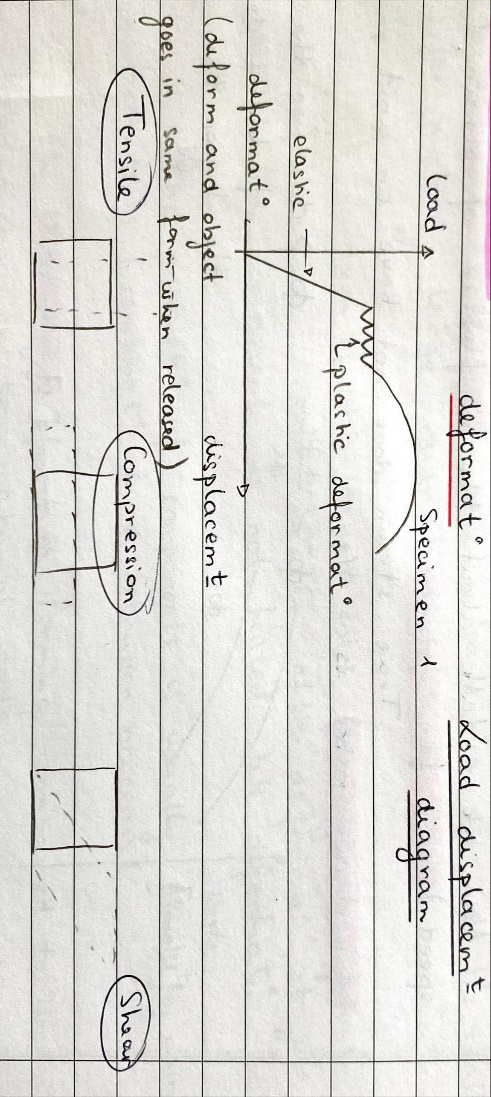 deformat° Load displacem<u>t</u>
diagram
Load
Specimen 1
elastic
plastic deformat°
deformat°
displacem<u>t</u>
(deform and object
goes in same form when released)
Tensile
Compression
Shear